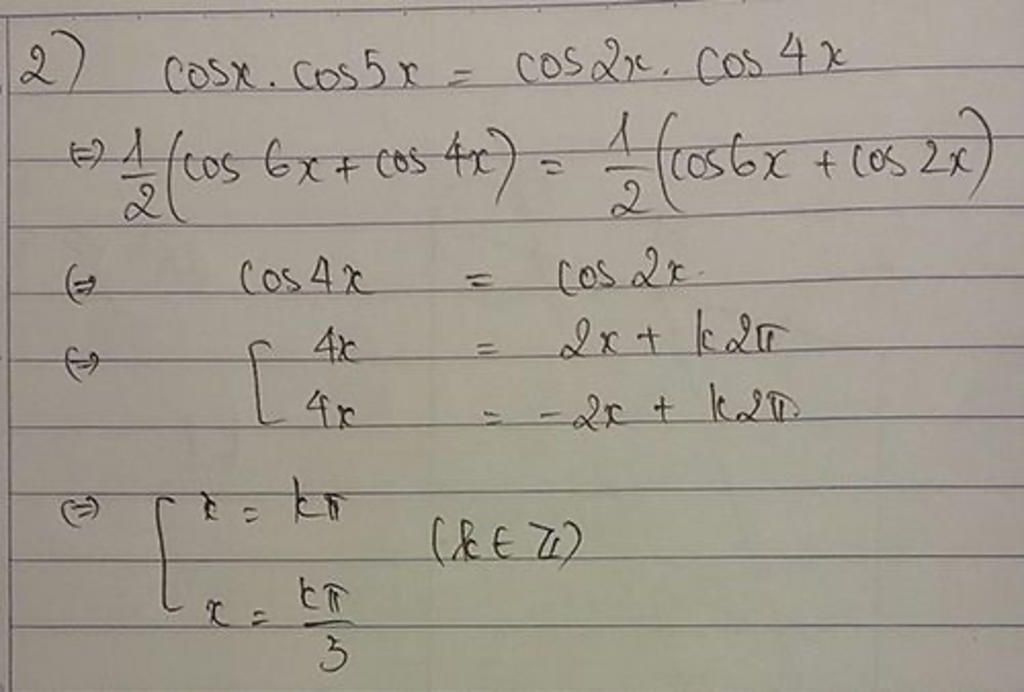 2) cosx . cos5x = cos2x . cos 4x
⇔ 1/2 (cos 6x + cos 4x) = 1/2 (cos6x + cos 2x)
⇔ cos4x = cos 2x
⇔ [ 4x = 2x + k2π
4x = -2x + k2π
⇔ [ x = kπ (k ∈ ℤ)
x = kπ/3